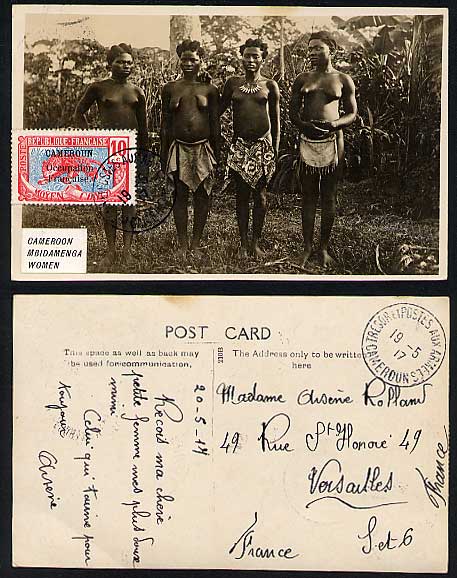 REPUBLIQUE FRANÇAISE
10
POSTE
CAMEROUN
Occupation
Française
MOYEN CONGO
CAMEROON
MBIDAMENGA
WOMEN
POST CARD
This space as well as back may
be used for communication.
210B
The Address only to be written
here
TRESOR ET POSTES AUX ARMEES
19-5
17
CAMEROUN
20-5-17
Reçois ma chère
petite femme mes plus doux
mimi
Celui qui t'aime pour
toujours
Arsène
Madame Arsène Rolland
49 Rue St Honoré 49
Versailles
S et O
France
France